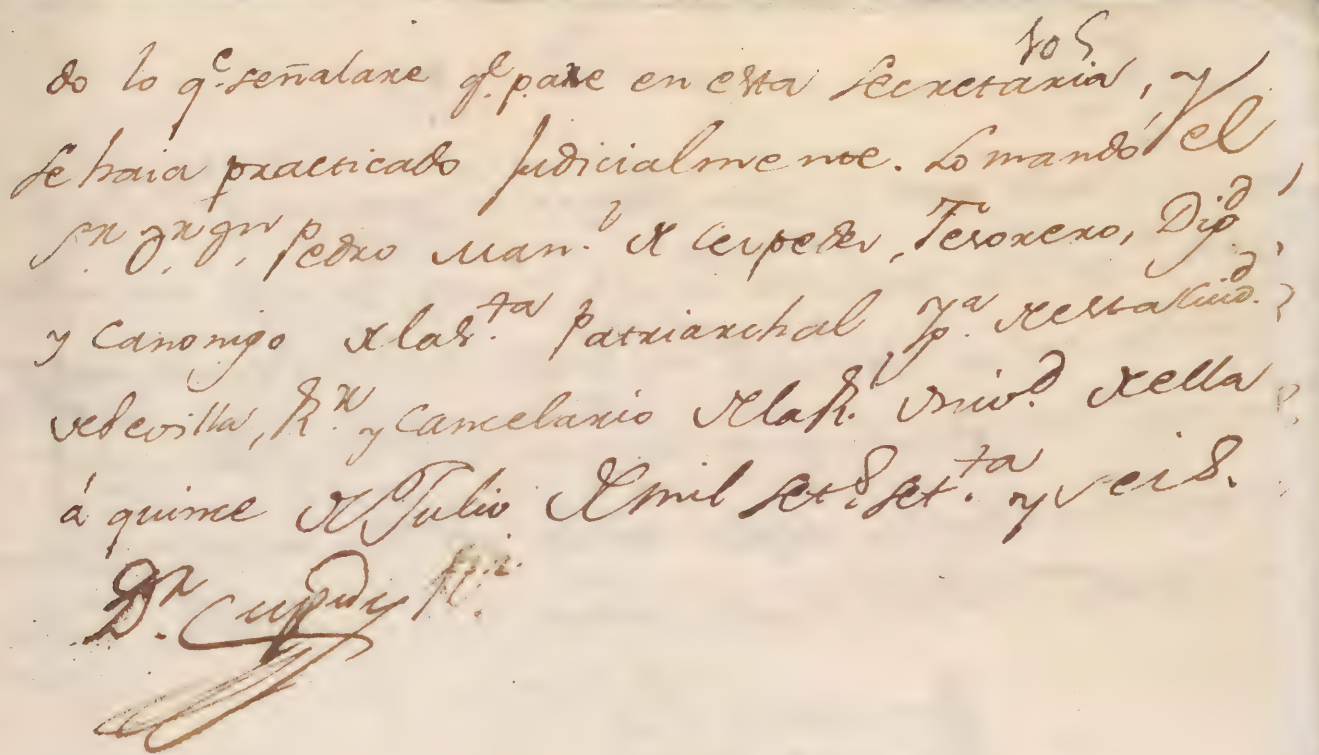 do lo q.e señalare q.e pare en esta Secretaria, y
se haia practicado Judicialmente. Lo mandó el
S.r D.r D.n Pedro Man.l de Cespedes, Tesorero, Dig.d
y Canonigo de la S.ta Patriarchal Yg.a de esta Ciud.d
de Sevilla, R.r y Cancelario de la R.l Univ.d de ella
á quince de Julio de mil set.s set.ta y seis.
D.r Cespedes R.r